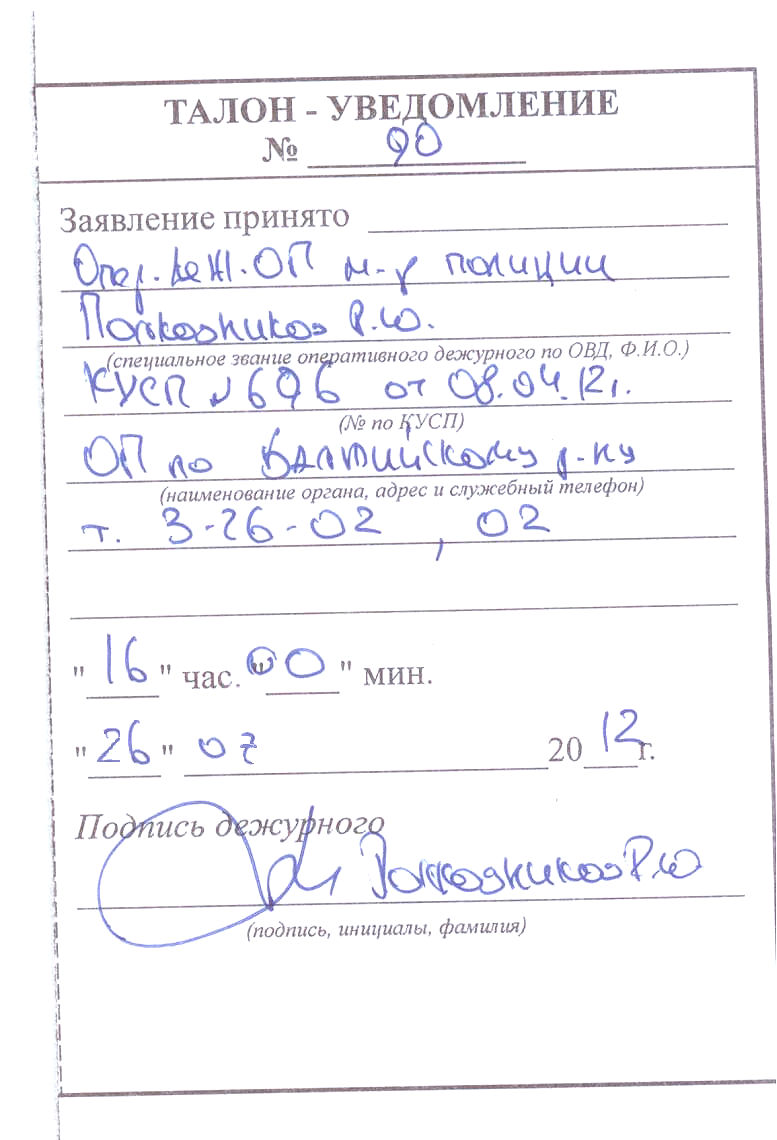 ТАЛОН - УВЕДОМЛЕНИЕ
№ 90
Заявление принято
Опер. деж. ОП м-р полиции
Полковников Р.Ю.
(специальное звание оперативного дежурного по ОВД, Ф.И.О.)
КУСП № 696 от 08.04.12г.
(№ по КУСП)
ОП по Балтийскому р-ну
(наименование органа, адрес и служебный телефон)
т. 3-26-02, 02
"16" час. "00" мин.
"26" 07 2012г.
Подпись дежурного
Полковников Р.Ю
(подпись, инициалы, фамилия)